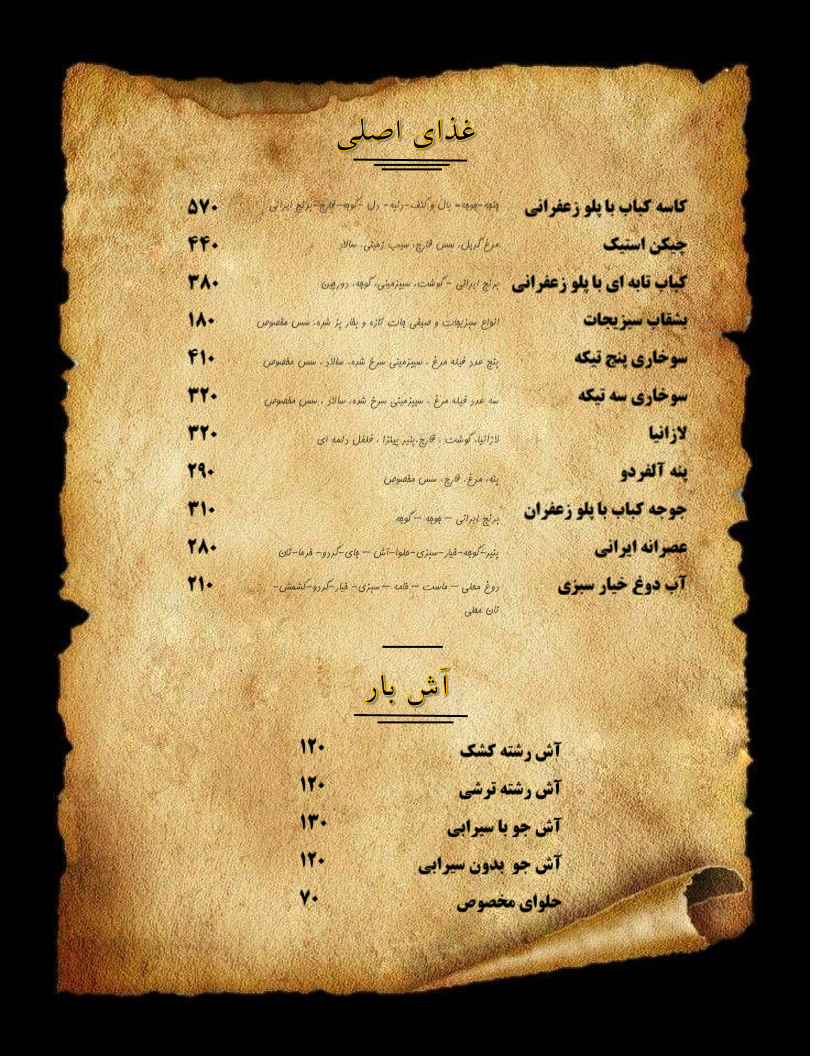 غذای اصلی
کاسه کباب با پلو زعفرانی پنجه-جوجه- بال و کتف-دنبه- دل -گوجه-قارچ-برنج ایرانی ۵۷۰
چیکن استیک مرغ گریل، سس قارچ، سیب زمینی، سالاد ۴۴۰
کباب تابه ای با پلو زعفرانی برنج ایرانی - گوشت، سیبزمینی، گوجه، دورچین ۳۸۰
بشقاب سبزیجات انواع سبزیجات و صیفی جات تازه و بخار پز شده، سس مخصوص ۱۸۰
سوخاری پنج تیکه پنج عدد فیله مرغ ، سیبزمینی سرخ شده، سالاد ، سس مخصوص ۴۱۰
سوخاری سه تیکه سه عدد فیله مرغ ، سیبزمینی سرخ شده، سالاد ، سس مخصوص ۳۲۰
لازانیا لازانیا، گوشت ، قارچ،پنیر پیتزا ، فلفل دلمه ای ۳۲۰
پنه آلفردو پنه، مرغ، قارچ، سس مخصوص ۲۹۰
جوجه کباب با پلو زعفران برنج ایرانی – جوجه – گوجه ۳۱۰
عصرانه ایرانی پنیر-گوجه-خیار-سبزی-حلوا-آش – چای-گردو- خرما-نان ۲۸۰
آب دوغ خیار سبزی دوغ محلی – ماست – خامه – سبزی- خیار-گردو-کشمش- ۲۱۰
نان محلی
آش بار
آش رشته کشک ۱۲۰
آش رشته ترشی ۱۲۰
آش جو با سیرابی ۱۳۰
آش جو بدون سیرابی ۱۲۰
حلوای مخصوص ۷۰